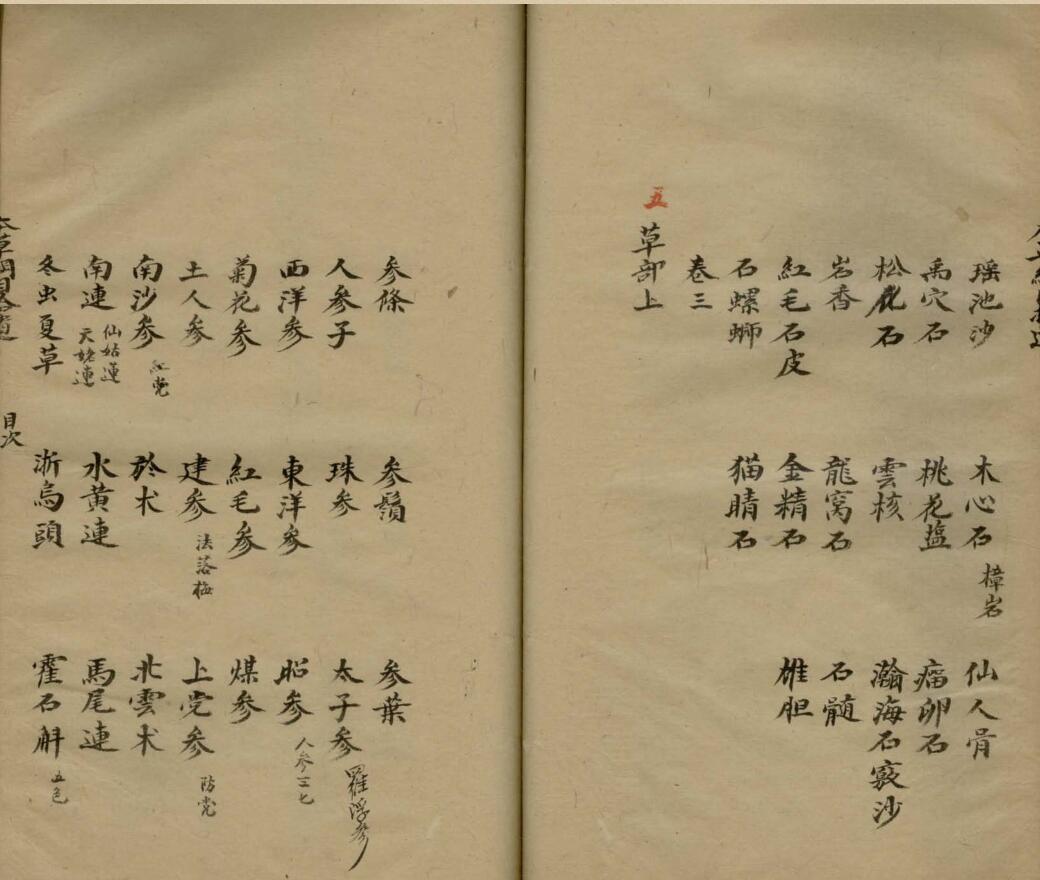 瑶池沙 木心石 樟岩 仙人骨
禹穴石 桃花盐 瘤卵石
松化石 雲核 瀚海石竅沙
岩香 龍窩石 石髄
紅毛石皮 金精石 雄胆
石螺螄 猫睛石
卷三
五
草部上
参條 参鬚 参葉
人参子 珠参 太子参 羅浮参
西洋参 東洋参 昭参 人参三七
菊花参 紅毛参 煤参
土人参 建参 法落梅 上党参 防党
南沙参 紅党 於术 北雲术
南連 仙姑連 天姥連 水黄連 馬尾連
冬虫夏草 浙烏頭 霍石斛 五色
目次